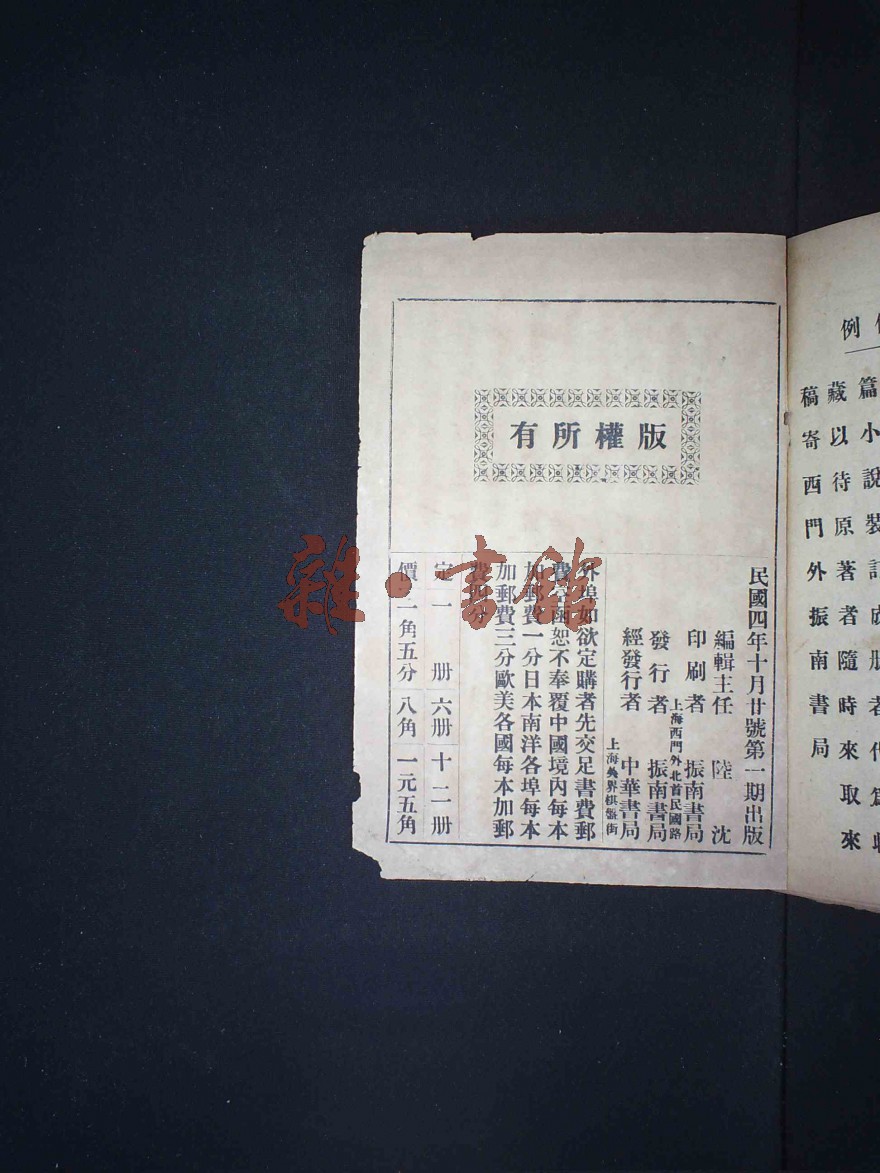 例
篇小說裝訂成册者代爲收
藏以待原著者隨時來取來
稿寄西門外振南書局
版權所有
民國四年十月廿號第一期出版
編輯主任 陸沈
印刷者 振南書局
上海西門外北首民國路
發行者 振南書局
經發行者 中華書局
上海英界棋盤街
外埠如欲定購者先交足書費郵
費空函恕不奉覆中國境内每本
加郵費一分日本南洋各埠每本
加郵費三分歐美各國每本加郵
費四分
定 一册 六册 十二册
價 二角五分 八角 一元五角
雜·書館